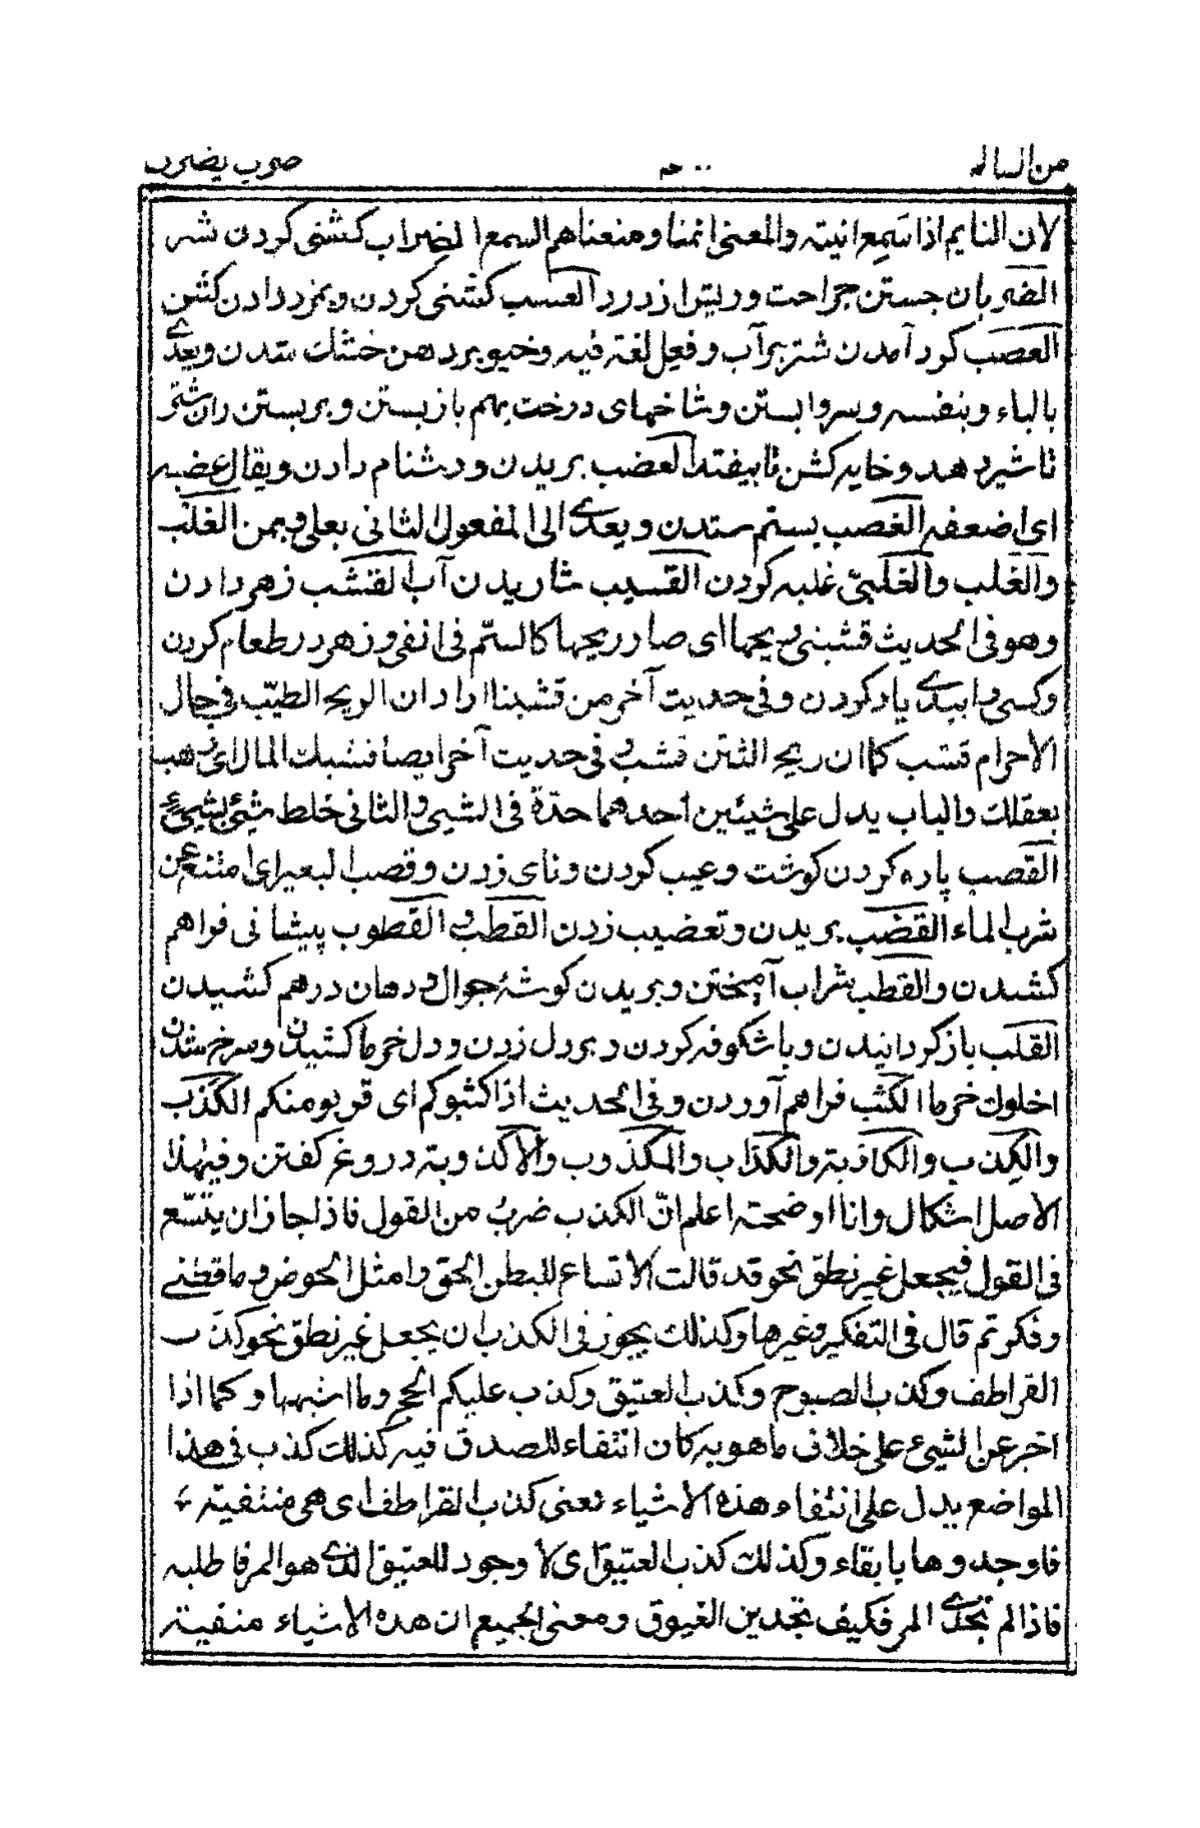 من السالم ضرب يضرب
لان النايم اذا سمع انيته والمعنى انمنا ومنعناهم السمع الضراب كشنى كردن شتر
الضربان جستن جراحت وريش از درد العسب كشنى كردن وبمزد دادن كشن
العصب كرد آمدن شتر بر آب وفعل لغة فيه وخيو بر دهن خشك شدن ويعدى
بالباء وبنفسه وسر وا بستن وشاخهاى درخت بهم باز بستن وبر بستن ران شتر
تا شير دهد وخايه كشن تا بيفتد العضب بريدن ودشنام دادن ويقال عضبه
اى اضعفه الغصب بستم ستدن ويعدى الى المفعول الثانى بعلى وبمن الغلب
والغلب والغلبى غلبه كردن القسيب شاريدن آب القشب زهر دادن
وهو فى الحديث قشبنى ريحها اى صار ريحها كالسم فى انفى وزهر در طعام كردن
وكسى را ببدى ياد كردن وفى حديث آخر من قشبنا اراد ان الريح الطيب فى حال
الاحرام قشب كما ان ريح النتن قشب وفى حديث آخر ايضا قشبك المال اى ذهب
بعقلك والباب يدل على شيئين احدهما حدة فى الشيئ والثانى خلط شيئ بشيئ
القصب پاره كردن كوشت وعيب كردن وناى زدن وقصب البعير اى امتنع عن
شرب الماء القضب بريدن وتعضيب زدن القطب والقطوب پيشانى فراهم
كشيدن والقطب شراب آميختن وبريدن كوشۀ جوال ودهان درهم كشيدن
القلب باز كردانيدن وباشكوفه كردن وبر دل زدن ودل خرما كشيدن وسرخ شدن
اخلوك خرما الكثب فراهم آوردن وفى الحديث اذا كثبوكم اى قربو منكم الكذب
والكذب والكاذبة والكذاب والمكذوب والاكذوبة دروغ كفتن وفى هذا
الاصل اشكال وانا اوضحته اعلم ان الكذب ضرب من القول فاذا جاز ان يتسع
فى القول فيجعل غير نطق نحو قد قالت الانساع للبطن الحق وامتل الحوض وما قطنى
وفكر ثم قال فى التفكير وغيرها وكذلك يجوز فى الكذب ان يجعل غير نطق نحو كذب
القراطف وكذب الصبوح وكذب العتيق وكذب عليكم الحج وما اشبهها وكما اذا
اخبر عن الشيئ على خلاف ما هو به كان انتفاء للصدق فيه كذلك كذب فى هذا
المواضع يدل على انتفاء هذه الاشياء فمعنى كذب القراطف اى هى منتفية
فاوجدوها بابقاء وكذلك كذب العتيق اى لا وجود للعتيق الذى هو المر فاطلبه
فاذا لم تجدى المر فكيف تجدين الغبوق ومعنى الجميع ان هذه الاشياء منفية